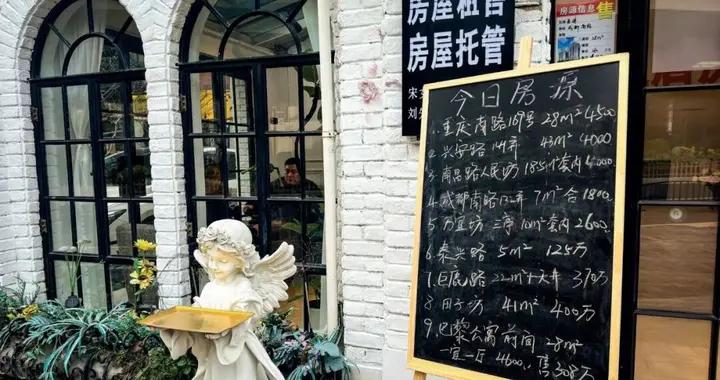 房屋租售
房屋托管
宋
刘
房源信息
售
今日房源
1. 重庆南路169号 28m² 4500
2. 兴安路 弄 43m² 4000
3. 南昌路人民坊 18.5m²套内 4000
4. 成都南路132弄 7m² 合 1800
5. 万宜坊 三亭 10m²套内 2600
6. 泰兴路 5m² 125万
7. 巨鹿路 22m²+天井 370万
8. 田子坊 41m² 400万
9. 巴黎公寓前间 28m²
一室一厅 4600, 售 308万